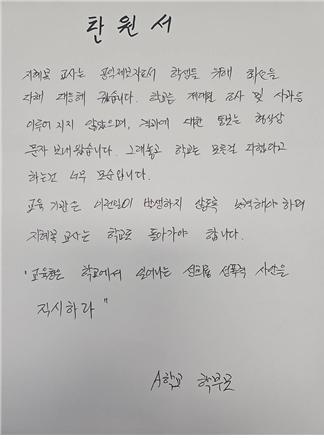 탄원서
지혜복 교사는 공익제보자로서 학생들 위해 최선을
다해 대응해 줬습니다. 학교는 제대로 조사 및 사과는
이루어 지지 않았으며, 결과에 대한 통보는 형식상
문자 보내왔습니다. 그래놓고 학교는 모든걸 다했다고
하는건 너무 모순입니다.
교육 기관은 이런일이 발생하지 않도록 노력해야 하며
지혜복 교사는 학교로 돌아가야 합니다.
"교육청은 학교에서 일어나는 성희롱 성폭력 사안을
직시하라"
A학교 학부모